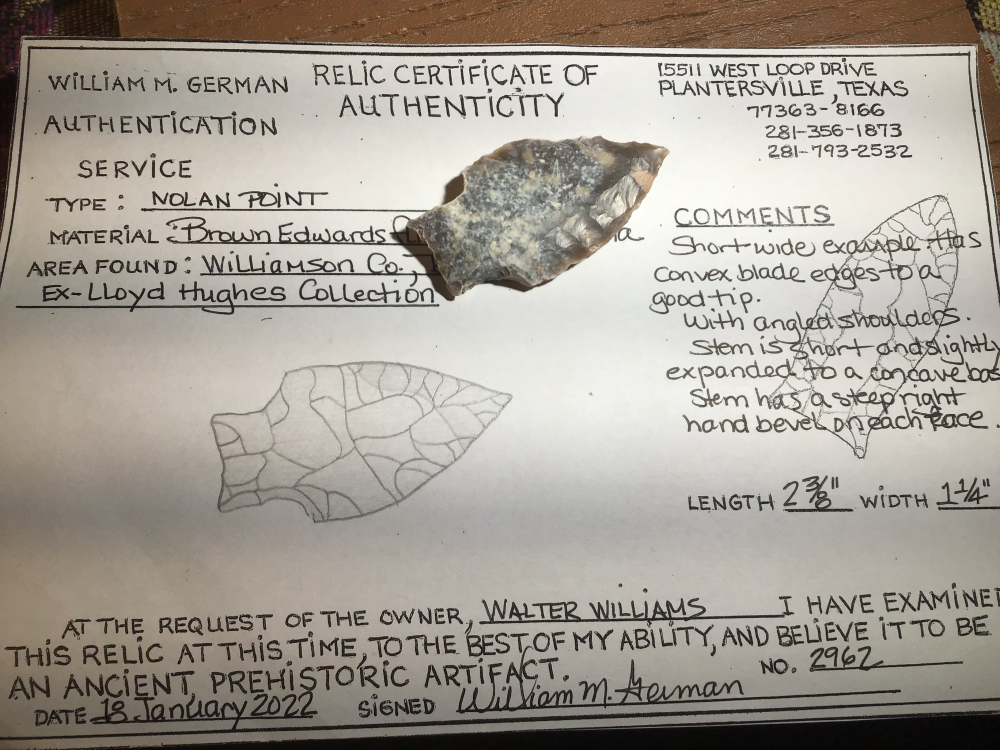 WILLIAM M. GERMAN
AUTHENTICATION
SERVICE
RELIC CERTIFICATE OF
AUTHENTICITY
15511 WEST LOOP DRIVE
PLANTERSVILLE, TEXAS
77363-8166
281-356-1873
281-793-2532
TYPE: NOLAN POINT
MATERIAL: Brown Edwards
AREA FOUND: Williamson Co.,
Ex-Lloyd Hughes Collection
COMMENTS
Short wide example. Has
convex blade edges to a
good tip.
With angled shoulders.
Stem is short and slightly
expanded to a concave bas
Stem has a steep right
hand bevel on each face.
LENGTH 2 3/8" WIDTH 1 1/4"
AT THE REQUEST OF THE OWNER, WALTER WILLIAMS I HAVE EXAMINED
THIS RELIC AT THIS TIME, TO THE BEST OF MY ABILITY, AND BELIEVE IT TO BE
AN ANCIENT, PREHISTORIC ARTIFACT. NO. 2962
DATE 18 January 2022 SIGNED William M. German